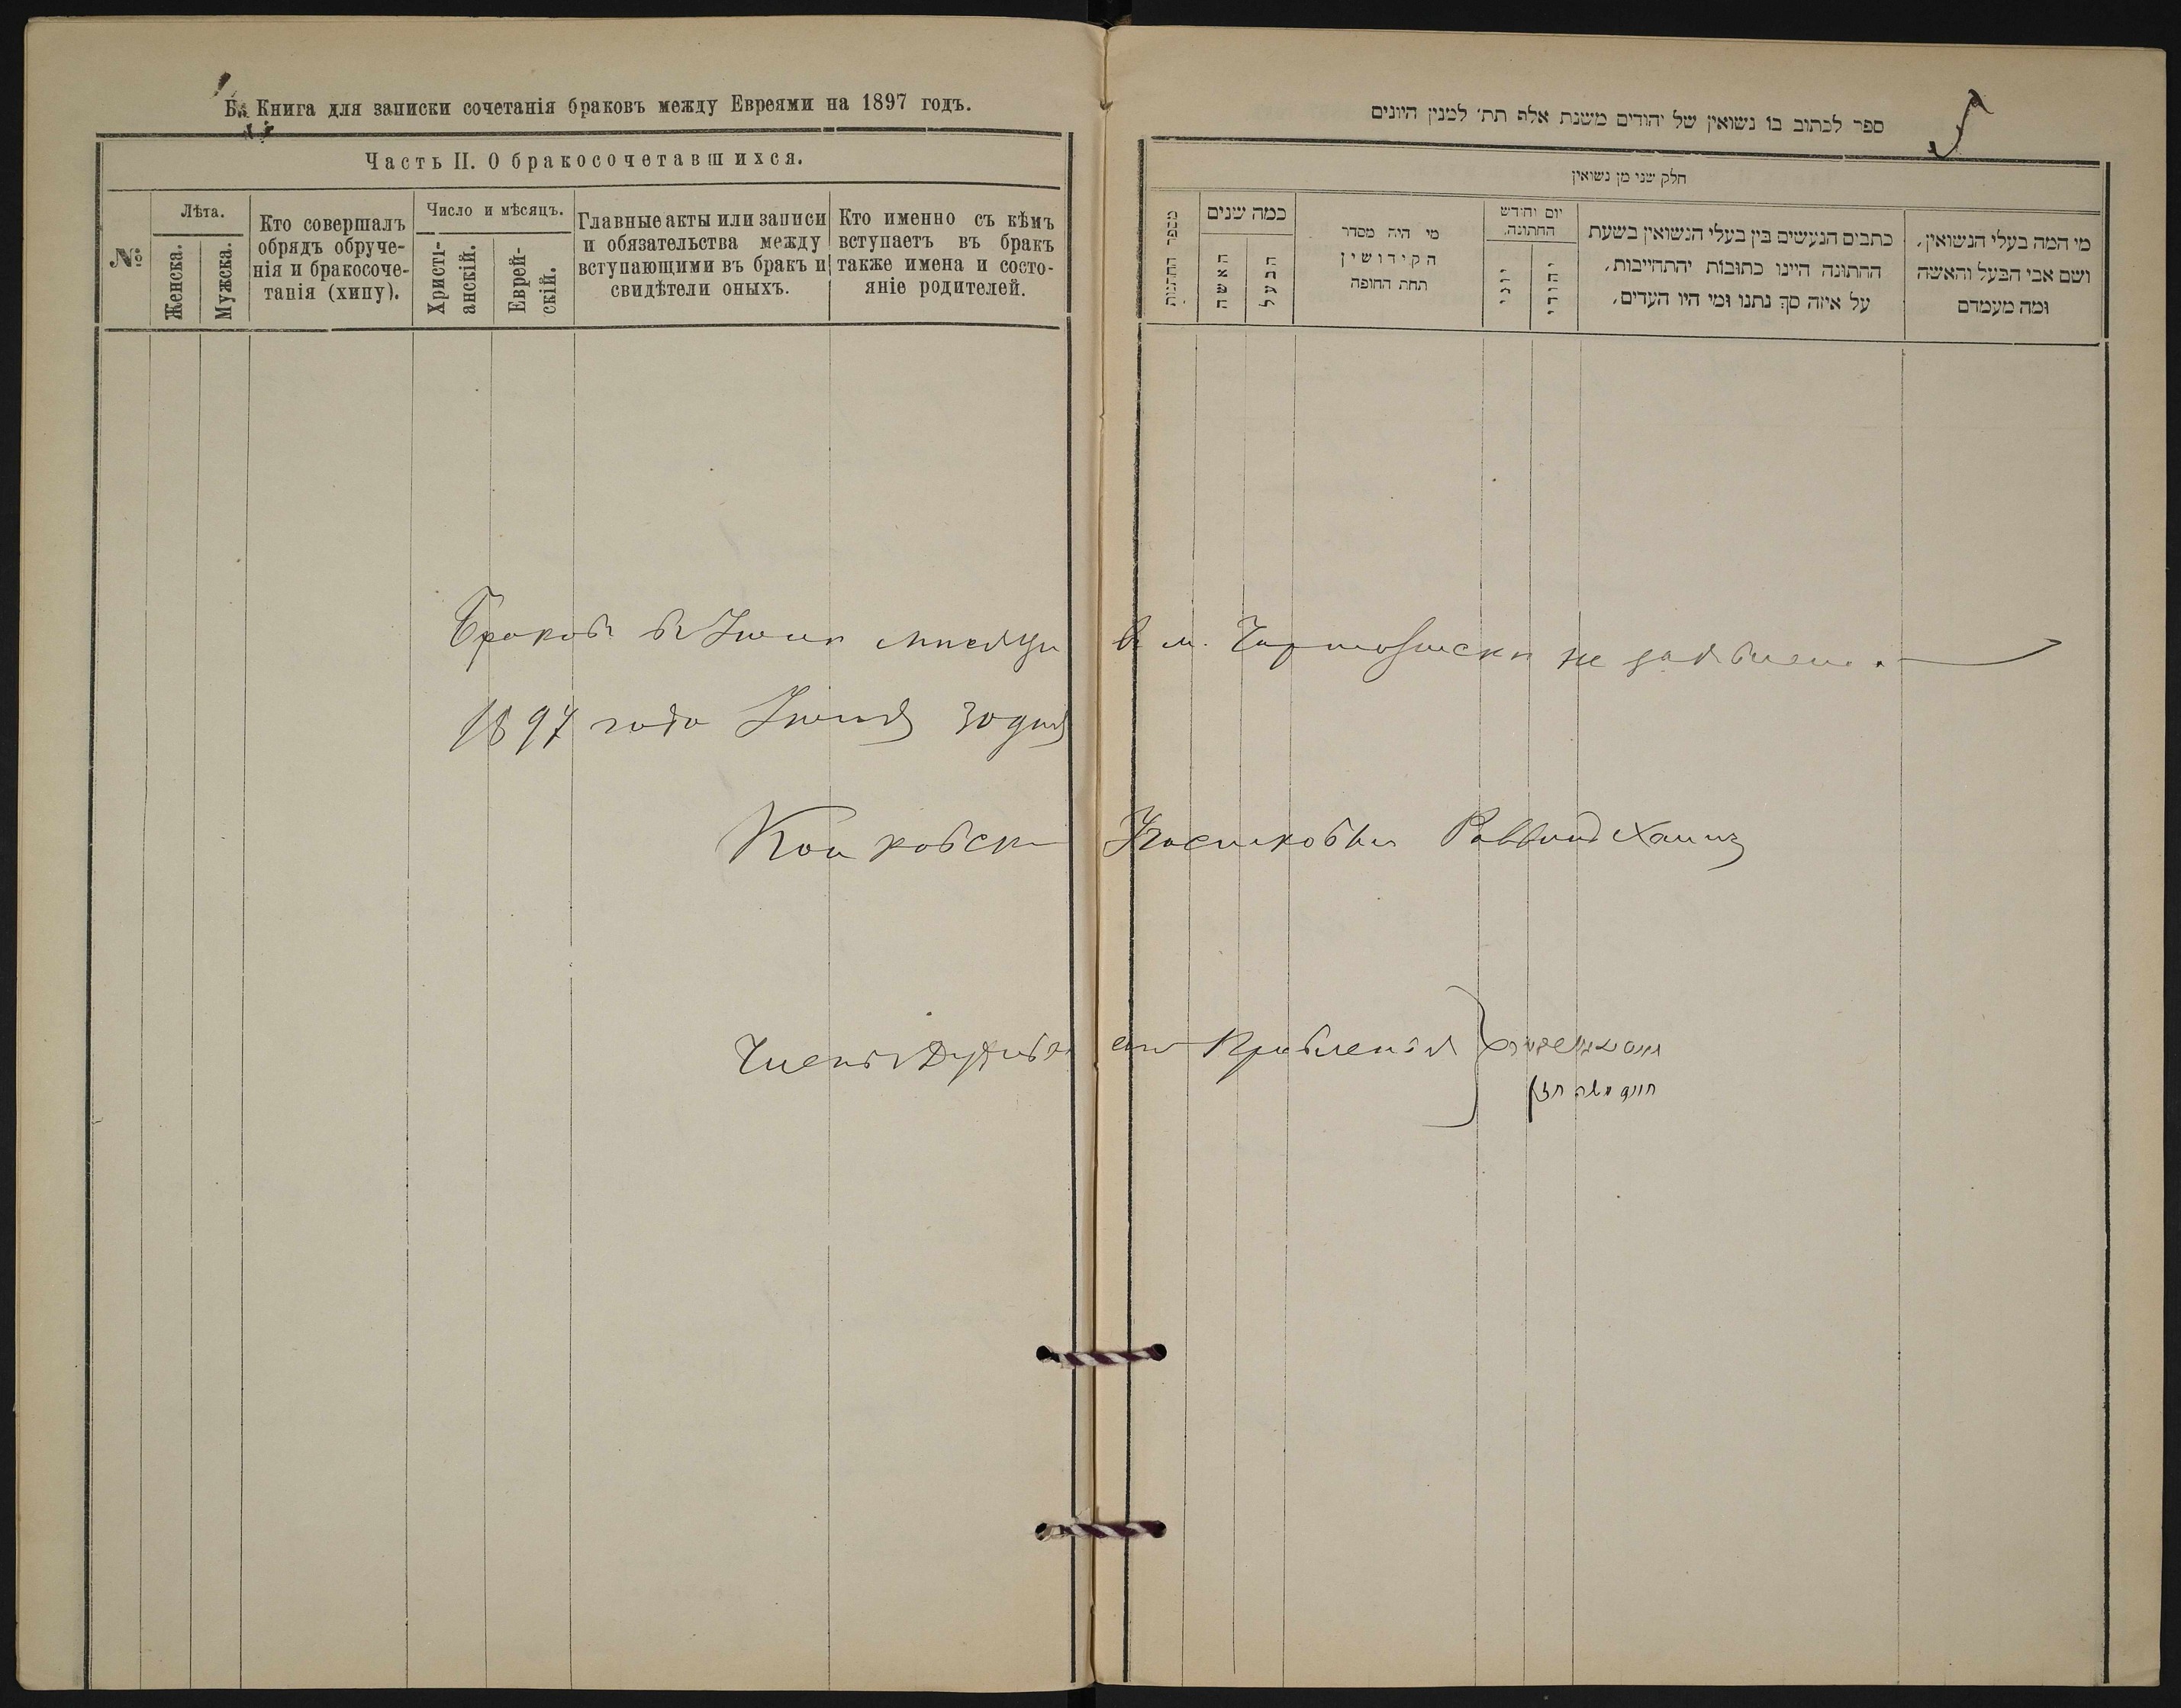 Книга для записки сочетанія браковъ между Евреями на 1897 годъ.
Часть II. О бракосочетавшихся.
№
Лѣта.
Женска.
Мужска.
Кто совершалъ
обрядъ обруче-
нія и бракосоче-
танія (хипу).
Число и мѣсяцъ.
Христі-
анскій.
Еврей-
скій.
Главные акты или записи
и обязательства между
вступающими въ бракъ и
свидѣтели оныхъ.
Кто именно съ кѣмъ
вступаетъ въ бракъ
также имена и состо-
яніе родителей.
ספר לכתוב בו נשואין של יהודים משנת אלף תת׳ למנין היונים
חלק שני מן נשואין
מי המה בעלי הנשואין,
ושם אבי הבעל והאשה
ומה מעמדם
כתבים הנעשים בין בעלי הנשואין בשעת
החתונה היינו כתובות והתחייבות,
על איזה סך נתנו ומי היו העדים,
יום וחודש
החתונה,
יהודי
יוני
מי היה מסדר
הקידושין
תחת החופה
כמה שנים
הבעל
האשה
מספר החתונות
Браковъ въ мѣсяцѣ въ м. не заявлено.
1897 года 30 дня
Раввинъ
Члены Правленія